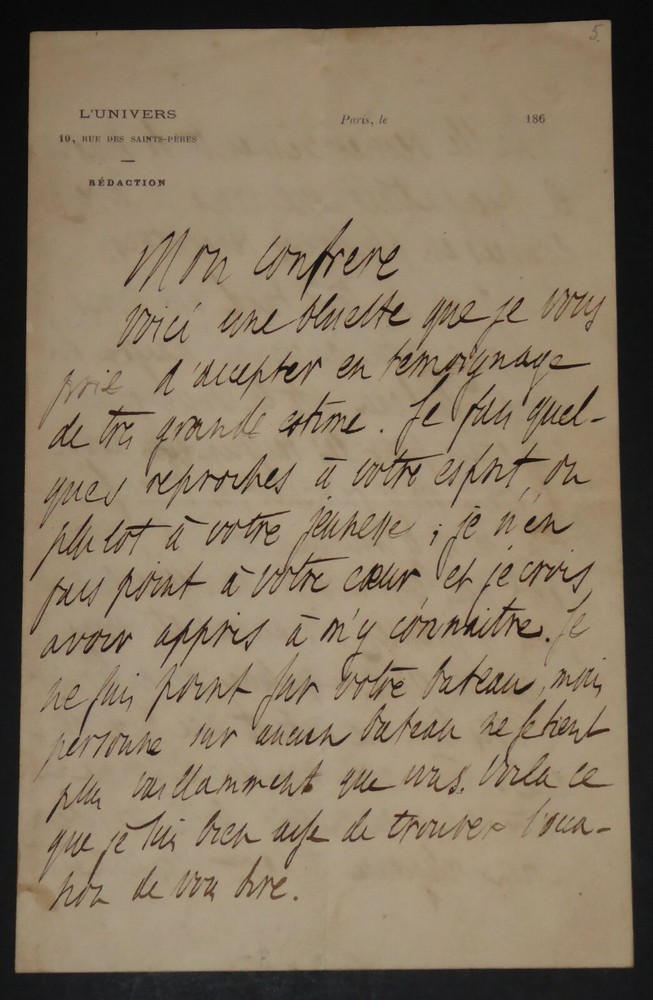 5.
L'UNIVERS
10, RUE DES SAINTS-PÈRES
RÉDACTION
Paris, le 186
Mon confrere
Voici une bluette que je vous
prie d'accepter en temoignage
de tres grande estime. Je fais quel-
ques reproches à votre esprit, ou
plutot à votre jeunesse ; je n'en
fais point à votre cœur et je crois
avoir appris à m'y connaitre. Je
ne suis point sur votre bateau, mais
personne sur aucun bateau ne se tient
plus vaillamment que vous. Voila ce
que je suis bien aise de trouver l'occa-
sion de vous dire.